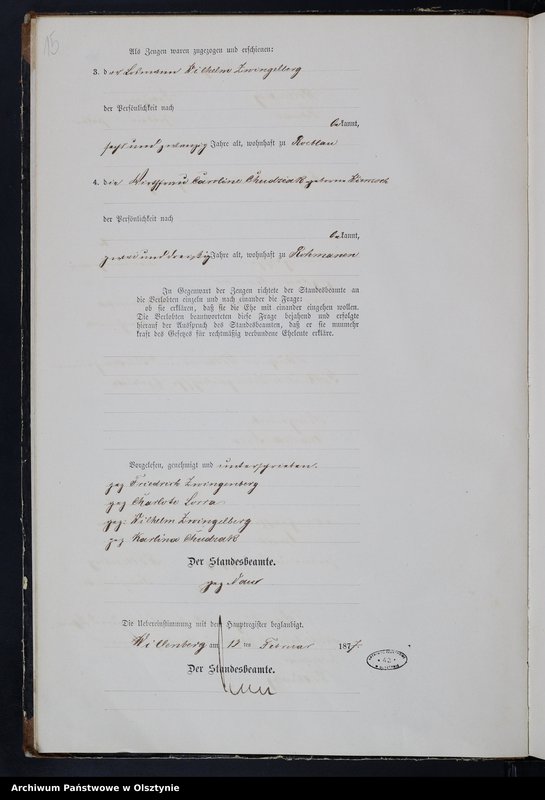 15
Als Zeugen waren zugezogen und erschienen:
3. der Losmann Wilhelm Zwingelberg
der Persönlichkeit nach
bekannt,
sechs und zwanzig Jahre alt, wohnhaft zu Rocklau
4. die Wirthsfrau Caroline Chudziak geborne
der Persönlichkeit nach
bekannt,
zwei und dreißig Jahre alt, wohnhaft zu Rohmanen
In Gegenwart der Zeugen richtete der Standesbeamte an
die Verlobten einzeln und nach einander die Frage:
ob sie erklären, daß sie die Ehe mit einander eingehen wollen.
Die Verlobten beantworteten diese Frage bejahend und erfolgte
hierauf der Ausspruch des Standesbeamten, daß er sie nunmehr
kraft des Gesetzes für rechtmäßig verbundene Eheleute erkläre.
Vorgelesen, genehmigt und unterschrieben.
gez Friedrich Zwingenberg
gez Charlote Lorra
gez. Wilhelm Zwingelberg
gez Karlina Chudziak
Der Standesbeamte.
gez
Die Uebereinstimmung mit dem Hauptregister beglaubigt.
Willenberg am 12 ten Februar 1877.
Der Standesbeamte.
Archiwum Państwowe w Olsztynie